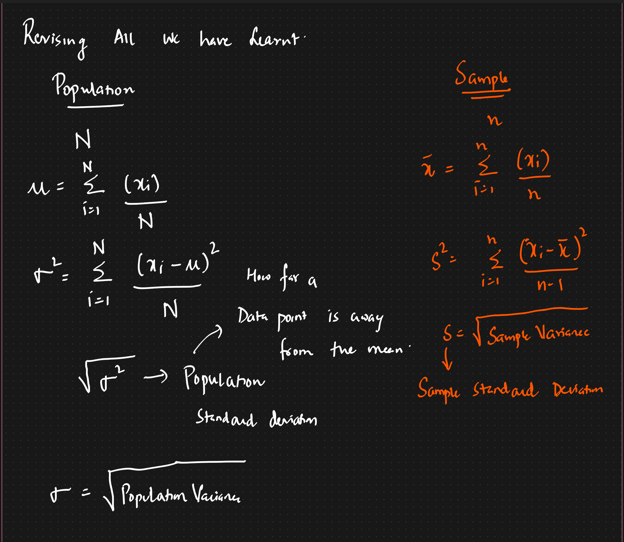 Revising All we have learnt.
Population
N
μ = Σ_{i=1}^{N} (xi) / N
σ² = Σ_{i=1}^{N} (xi - μ)² / N
How far a
Data point is away
from the mean.
√σ² → Population
Standard deviation
σ = √Population Variance
Sample
n
x̄ = Σ_{i=1}^{n} (xi) / n
S² = Σ_{i=1}^{n} (xi - x̄)² / n-1
S = √Sample Variance
Sample Standard Deviation